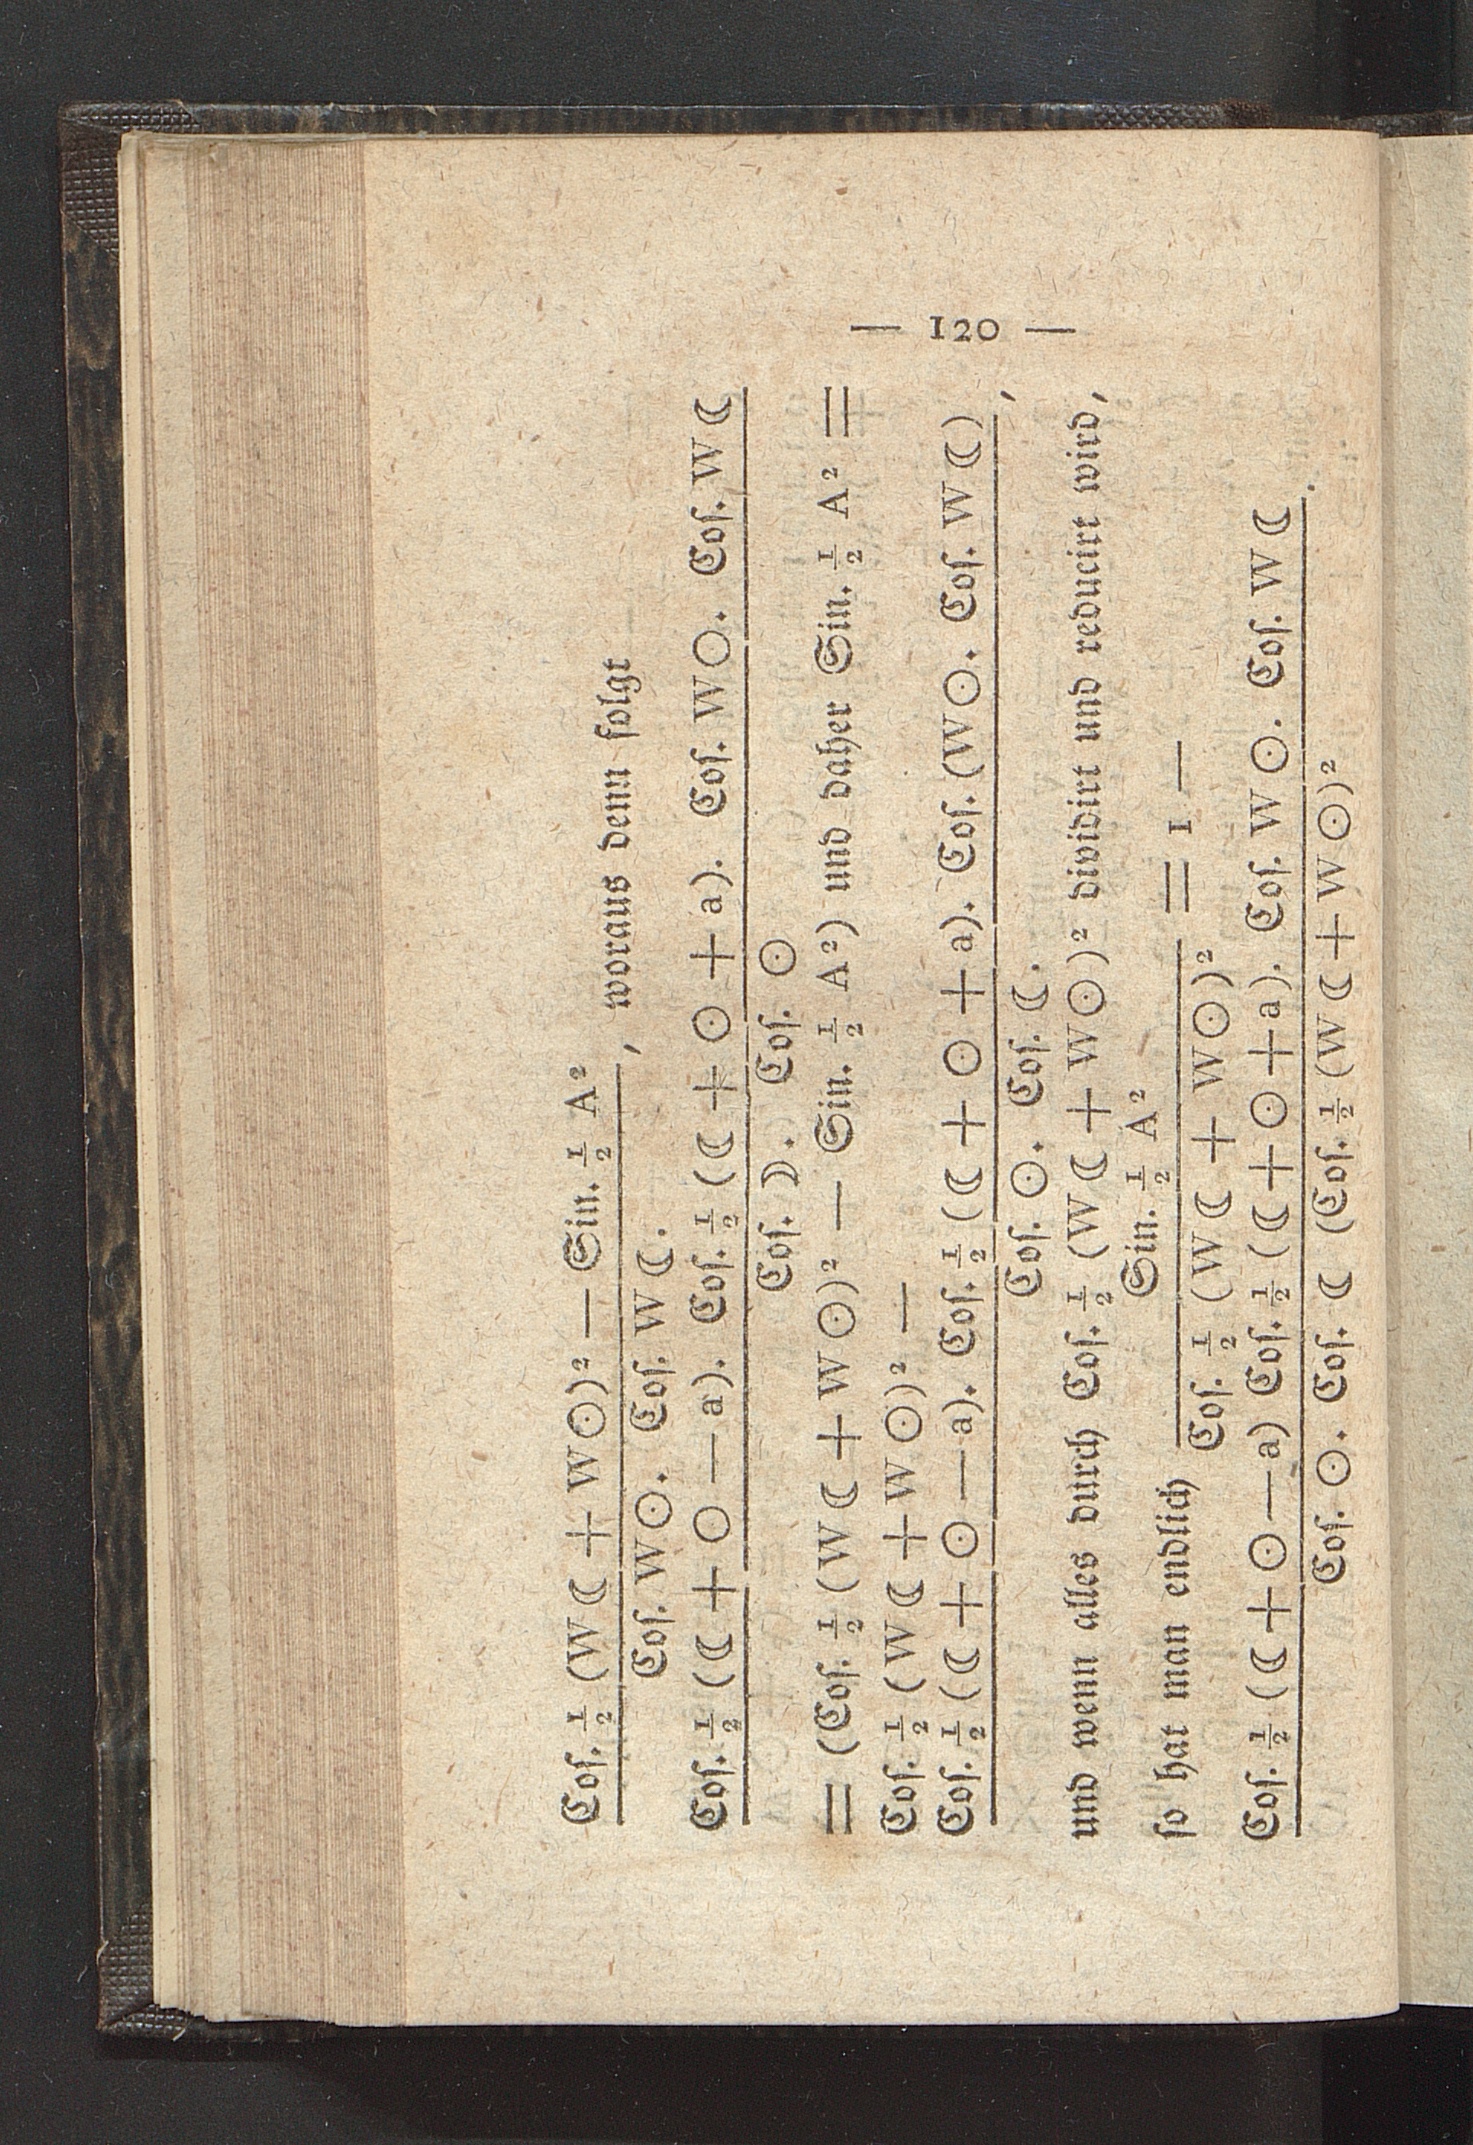 — 120 —
Coſ. ½ (W ☾ + W ☉)² — Sin. ½ A²
, woraus denn folgt
Coſ. W ☉. Coſ. W ☾.
Coſ. ½ (☾ + ○ — a). Coſ. ½ (☾ + ☉ + a). Coſ. W ○. Coſ. W ☾
Coſ. ☽. Coſ. ☉
= (Coſ. ½ (W ☾ + W ☉)² — Sin. ½ A²) und daher Sin. ½ A² =
Coſ. ½ (W ☾ + W ☉)² —
Coſ. ½ (☾ + ☉ — a). Coſ. ½ (☾ + ☉ + a). Coſ. (W ☉. Coſ. W ☾)
,
Coſ. ☉. Coſ. ☾.
und wenn alles durch Coſ. ½ (W ☾ + W ☉)² dividirt und reducirt wird,
Sin. ½ A²
ſo hat man endlich = 1 —
Coſ. ½ (W ☾ + W ☉)²
Coſ. ½ (☾ + ☉ — a) Coſ. ½ (☾ + ☉ + a). Coſ. W ☉. Coſ. W ☾
.
Coſ. ☉. Coſ. ☾ (Coſ. ½ (W ☾ + W ☉)²